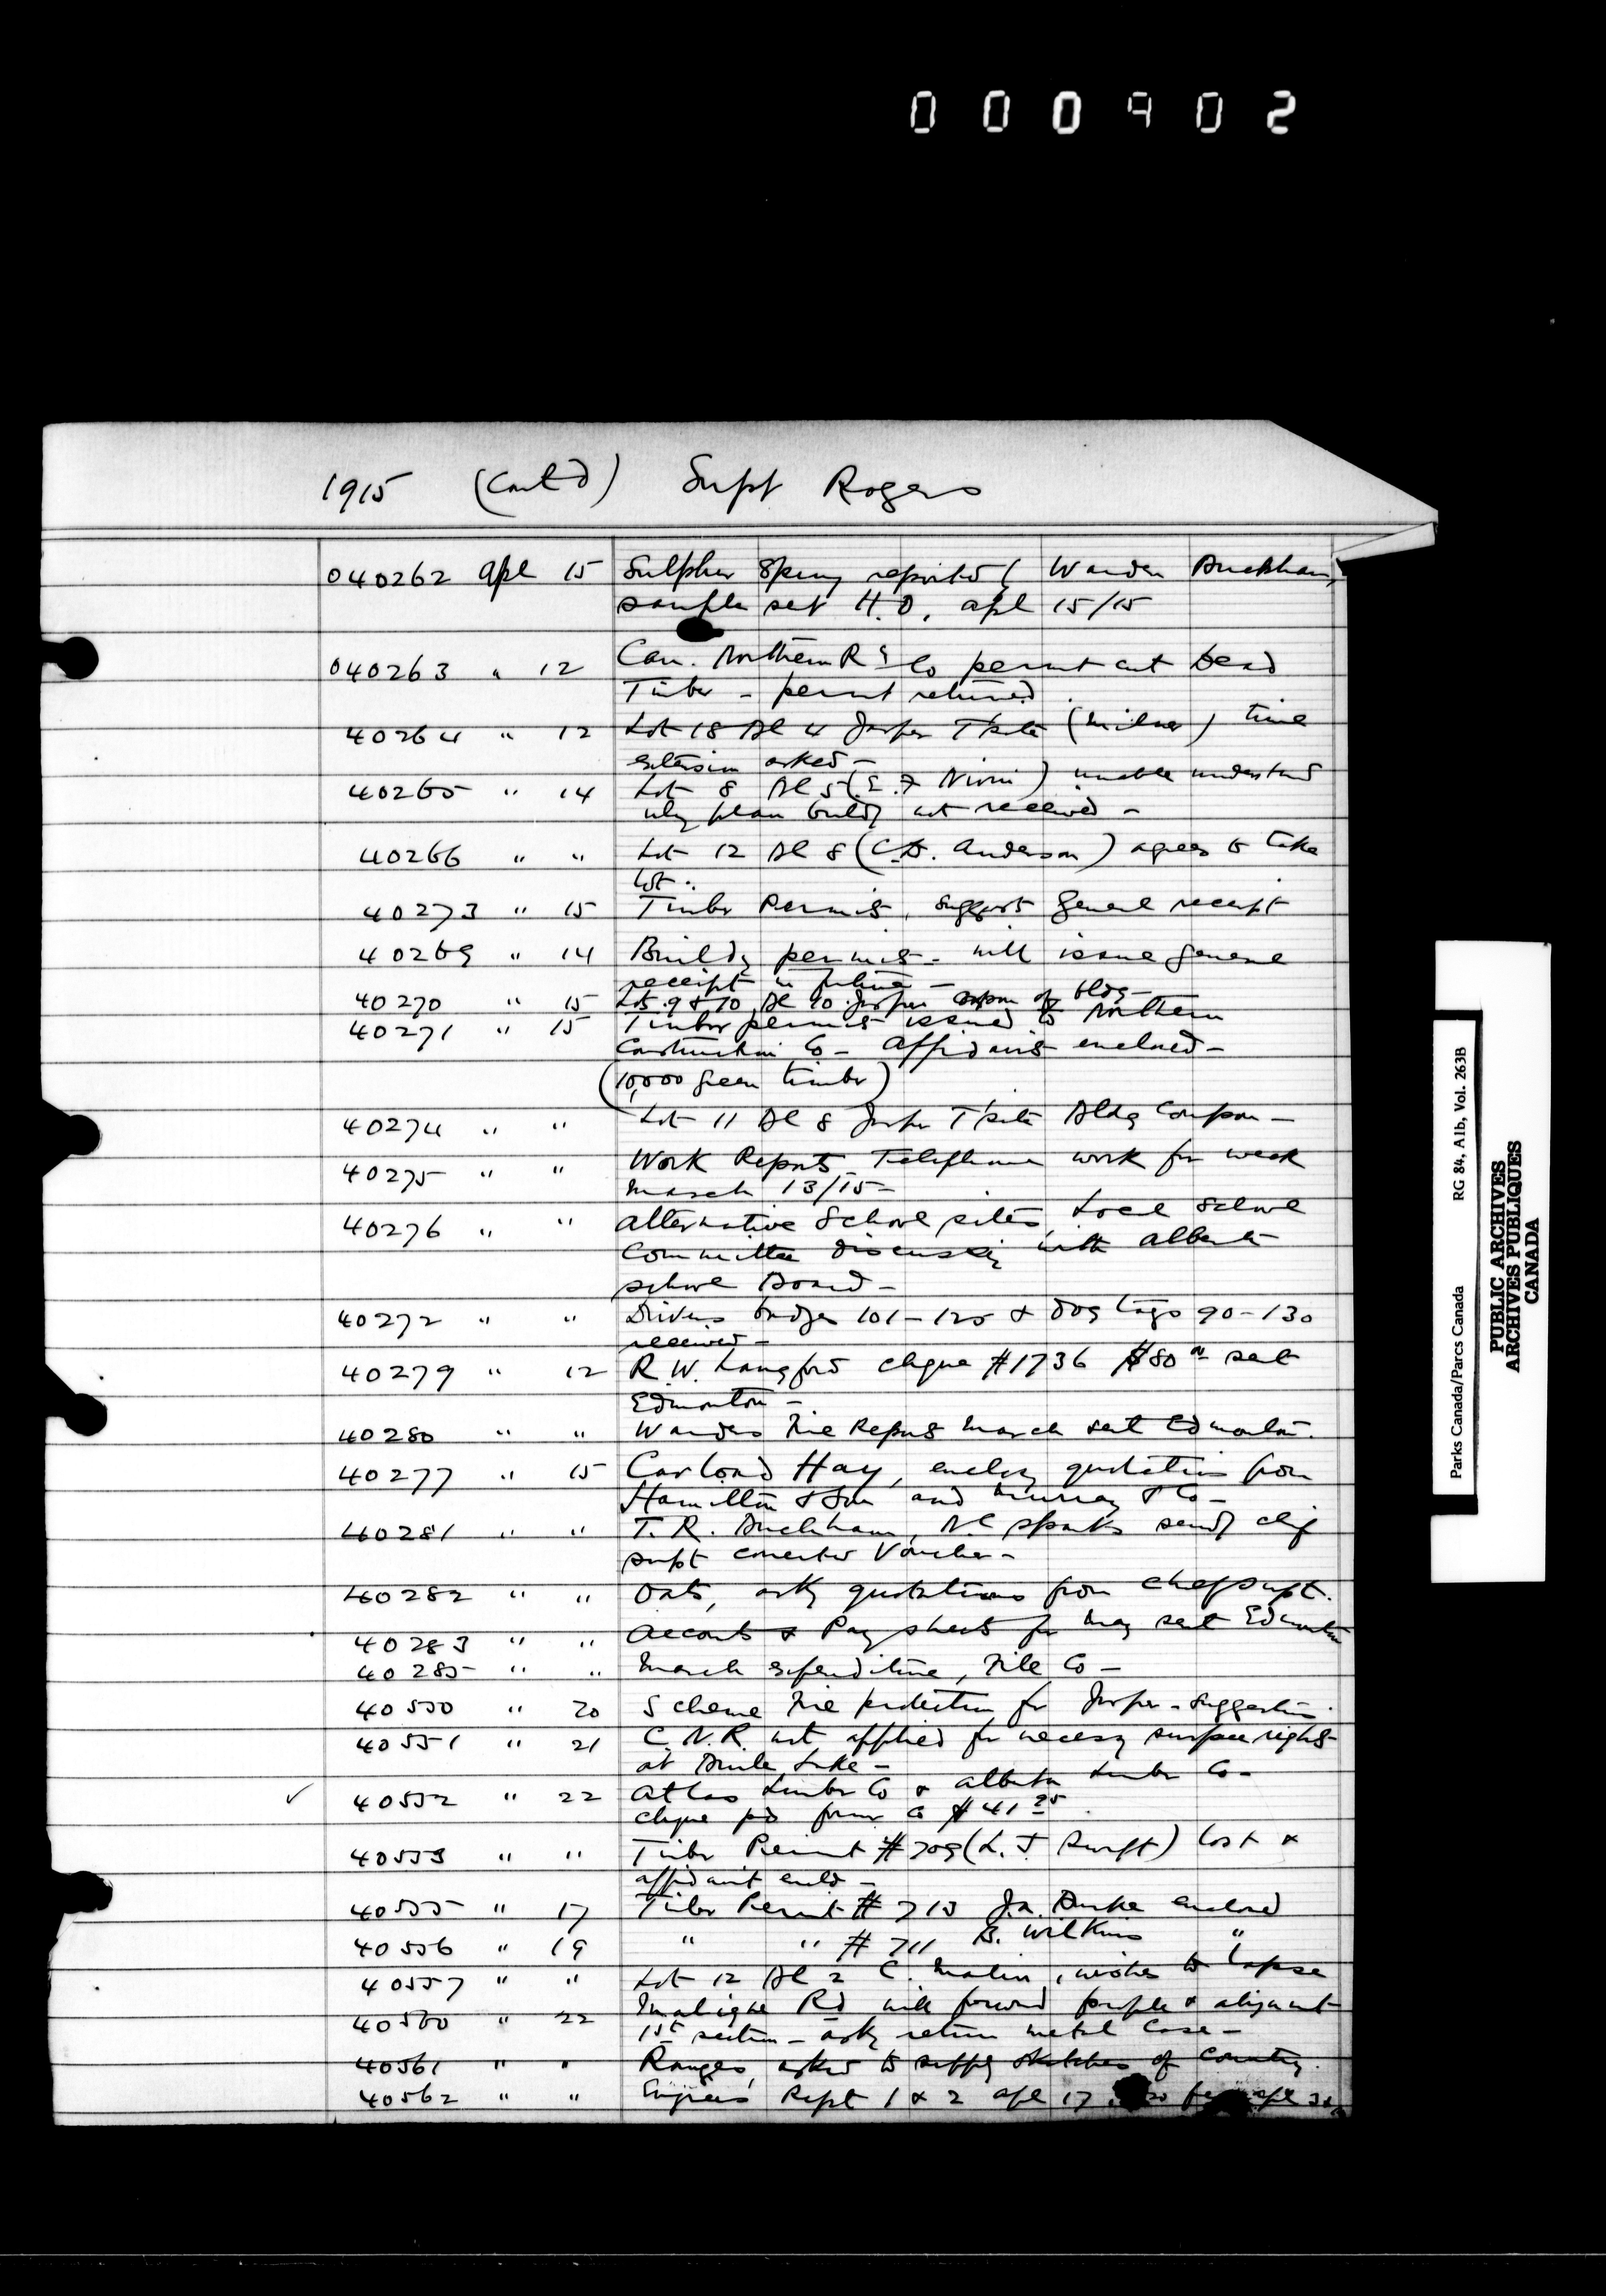 000902
1915 (Cont'd) Supt Rogers
040262 Apl 15 Sulphur Spring reported ( Warden Buckham,
sample set H.O. apl 15/15
040263 " 12 Can. Northern Ry Co permit cut Dead
Timber - permit returned
40264 " 12 Lot 18 Bl 4 Jasper T'site (Milner) time
extension asked -
40265 " 14 Lot 8 Bl 5 (E. F. ) unable understand
why plan buildg not received -
40266 " " Lot 12 Bl 8 (C.D. Anderson) agrees to take
lot.
40273 " 15 Timber Permits, suggests general receipt
40269 " 14 Buildg permits - will issue general
receipt in future -
40270 " 15 Lots 9 & 10 Bl 10 Jasper of bldg -
40271 " 15 Timber permit issued to Northern
Construction Co - Affidavit enclosed -
(10,000 green timber)
40274 " " Lot 11 Bl 8 Jasper T'site Bldg Compn -
40275 " " Work Reports Telephone work for week
March 13/15 -
40276 " " Alternative School sites, Local School
Committee discussing with Alberta
School Board -
40272 " " Drivers badges 101-125 & dog tags 90-130
received -
40279 " 12 R.W. Langford cheque #1736 $80 sent
Edmonton -
40280 " " Wardens Fire Repts March sent Edmonton.
40277 " 15 Carload Hay, enclosg quotations from
Hamilton & Son and Murray & Co -
40281 " " T.R. Buckham, sendg chf
supt corrected Voucher -
40282 " " Oats, askg quotations from chief supt.
40283 " " Accounts & Pay sheets for May sent Edmonton
40285 " " March expenditure, File Co -
40550 " 20 Scheme Fire protection for Jasper - suggestion.
40551 " 21 C.N.R. not applied for necessy surface rights
at Brule Lake -
40552 " 22 Atlas Lumber Co & Alberta Lumber Co -
cheque pd former Co $41 25
40553 " " Timber Permit #709 (L. J. Swift) lost &
affidavit encld -
40555 " 17 Timber Permit #713 J.A. Burke enclosed
40556 " 19 " " #711 B. Wilkins "
40557 " " Lot 12 Bl 2 C. Malin, wishes to lapse
40560 " 22 Maligne Rd will forward profile & alignment
1st section - askg return metal case -
40561 " " Ranges, asked to supply sketches of country.
40562 " " Engineers Rept 1 & 2 apl 17 20 apl
PUBLIC ARCHIVES
ARCHIVES PUBLIQUES
CANADA
Parks Canada/Parcs Canada RG 84, A1b, Vol. 263B